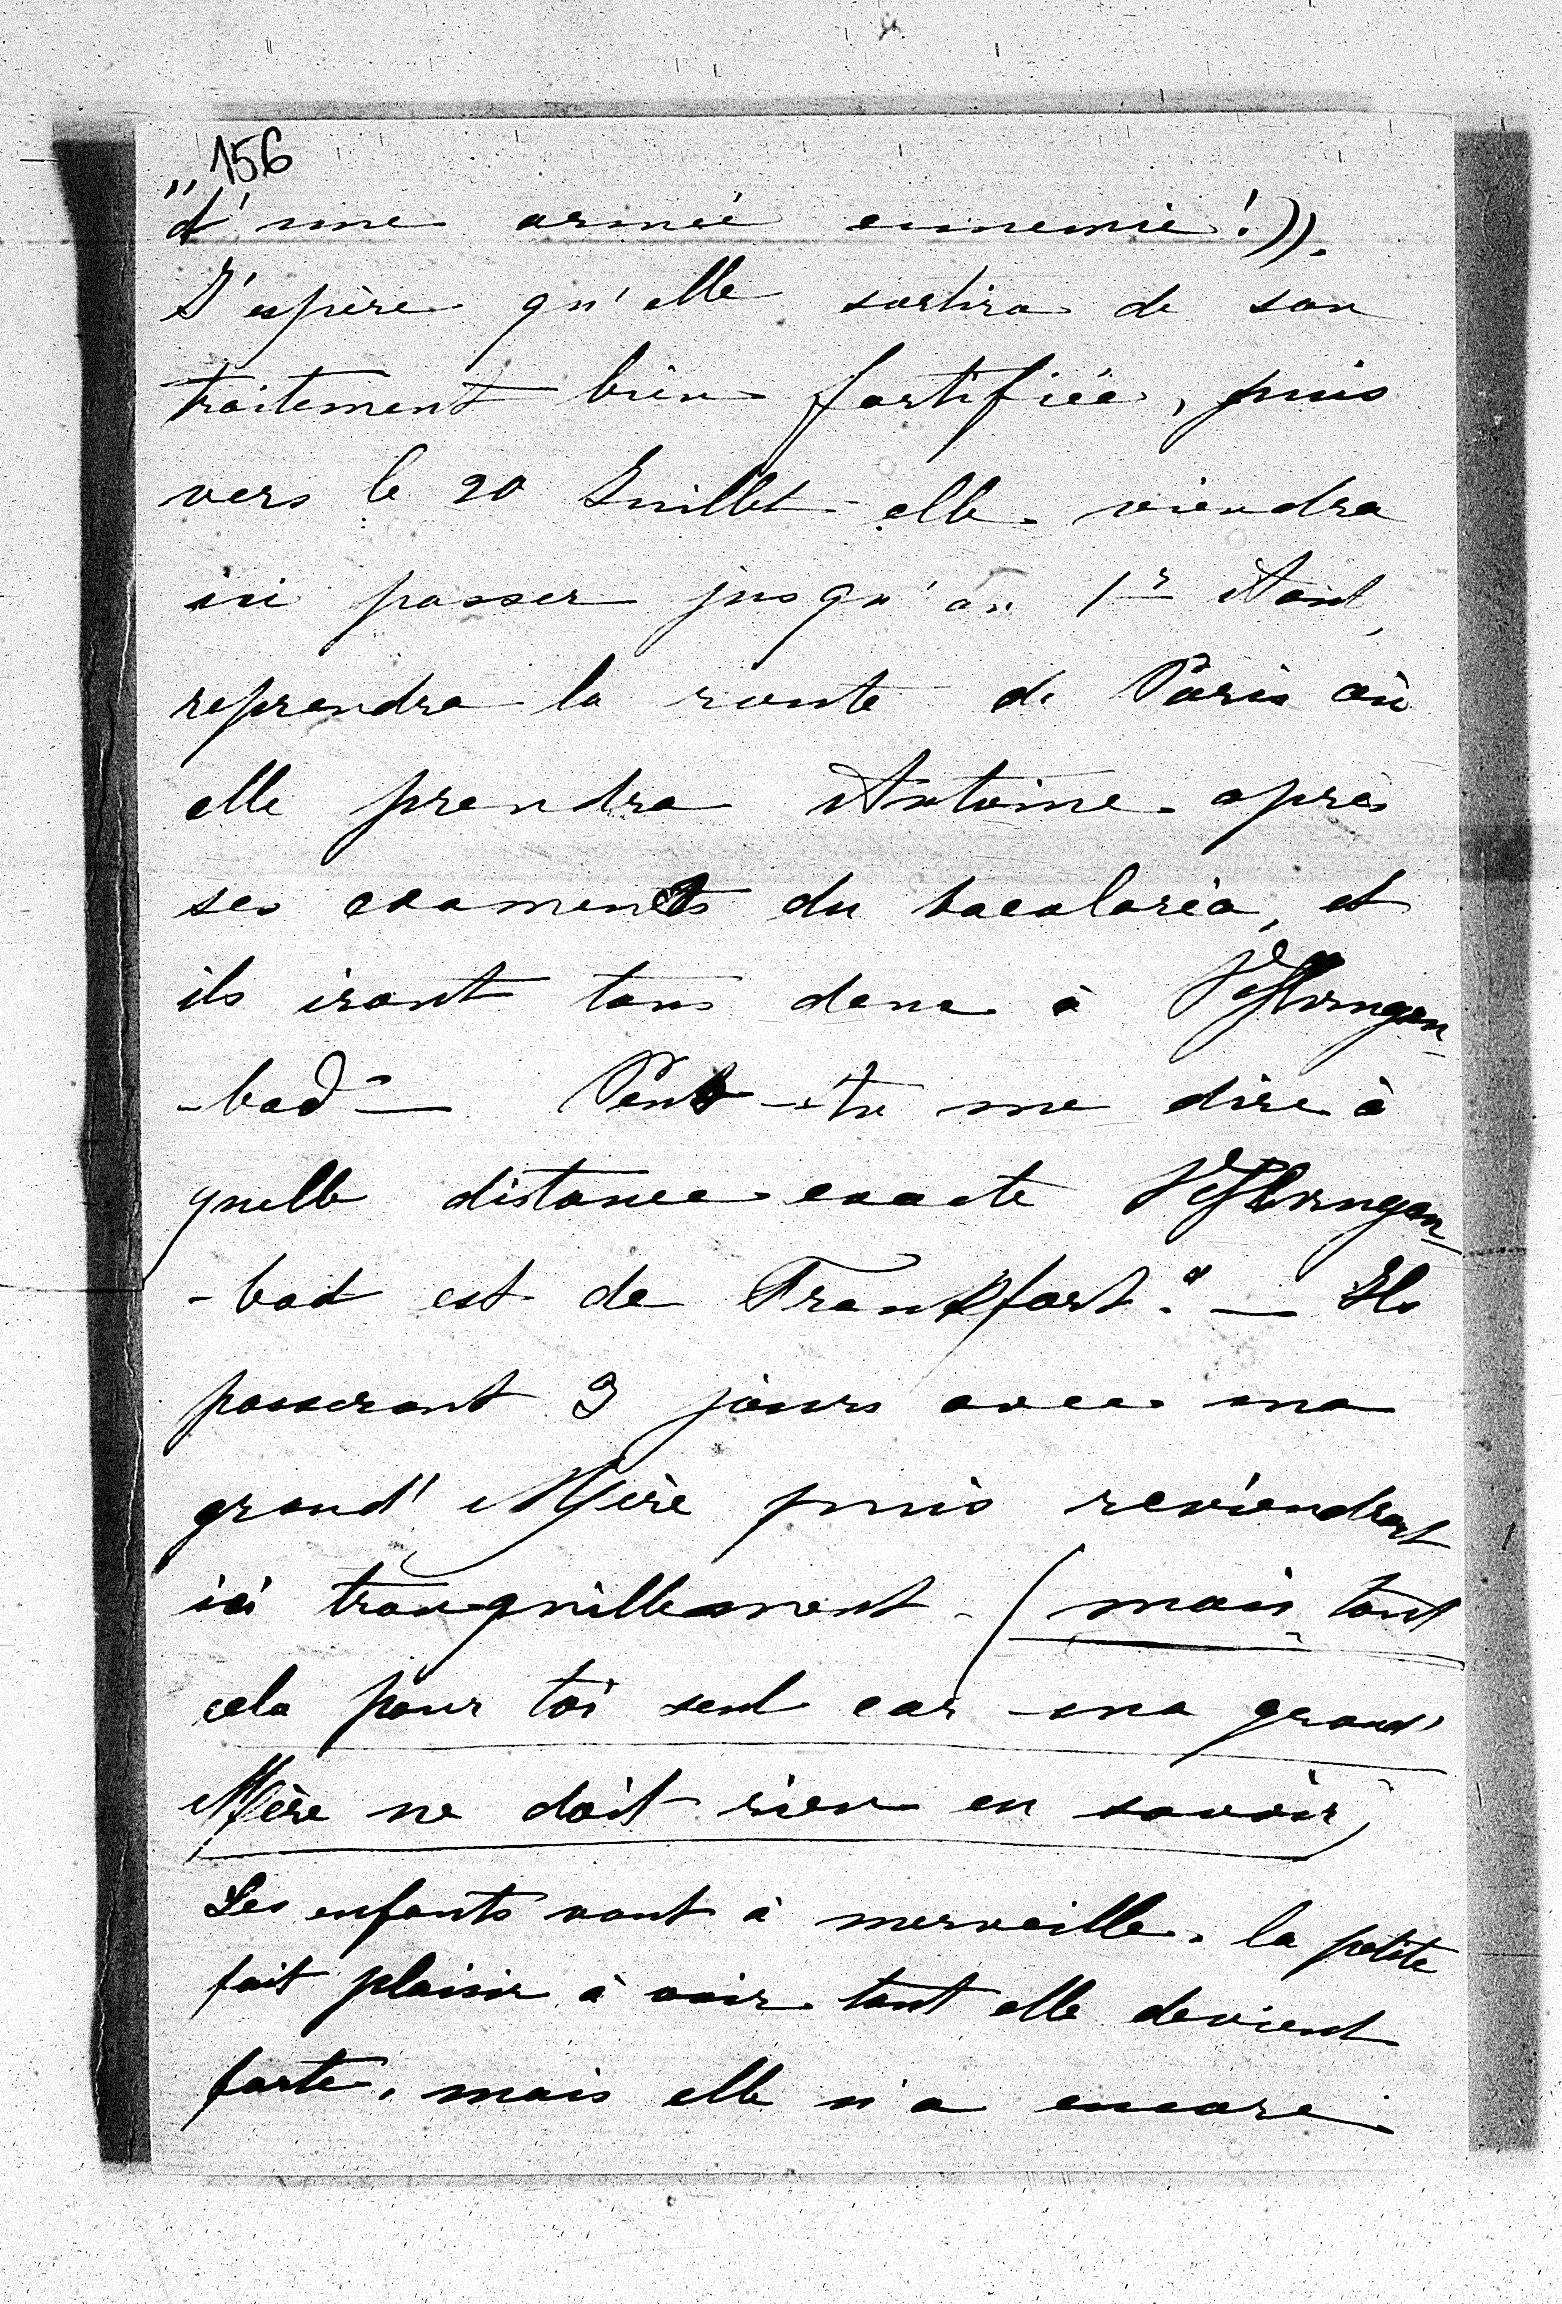 156
„ d'une armée ennemie!)).
J'espère qu'elle sortira de son
traitement bien fortifiée, puis
vers le 20 Juillet elle viendra
ici passer jusqu'au 1r Aout,
reprendra la route de Paris où
elle prendra Antoine après
ses examents du bacalaréa, et
ils iront tous deux à
-bad — Peut-tu me dire à
quelle distance exacte
-bad est de Frankfort? — Ils
passeront 3 jours avec ma
grand' Mère puis reviendront
ici tranquillement - (mais tout
cela pour toi seul car ma grand'
Mère ne doit rien en savoir)
Les enfants vont à merveille, la petite
fait plaisir à voir tant elle devient
forte, mais elle n'a encore